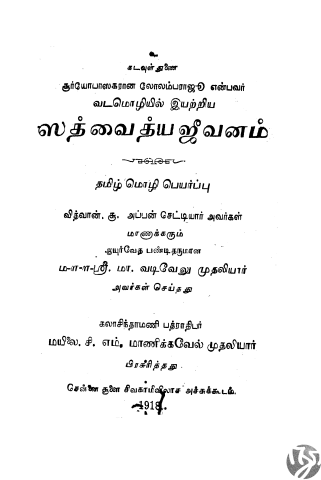 உ
கடவுள் துணை
சூர்யோபாஸகரான லோலம்பராஜூ என்பவர்
வடமொழியில் இயற்றிய
ஸத்வைத்யஜீவனம்
தமிழ் மொழி பெயர்ப்பு
வித்வான். சூ. அப்பன் செட்டியார் அவர்கள்
மாணாக்கரும்
ஆயுர்வேத பண்டிதருமான
ம-ா-ா-ஸ்ரீ. மா. வடிவேலு முதலியார்
அவர்கள் செய்தது
கலாசிந்தாமணி பத்ராதிபர்
மயிலை. சி. எம். மாணிக்கவேல் முதலியார்
பிரசுரித்தது
சென்னை சூளை சிவகாமிவிலாச அச்சுக்கூடம்.
1918.